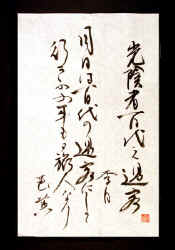 光陰者百代之過客
李白
月日は百代の過客にして
行かふ年も又旅人なり
芭蕉